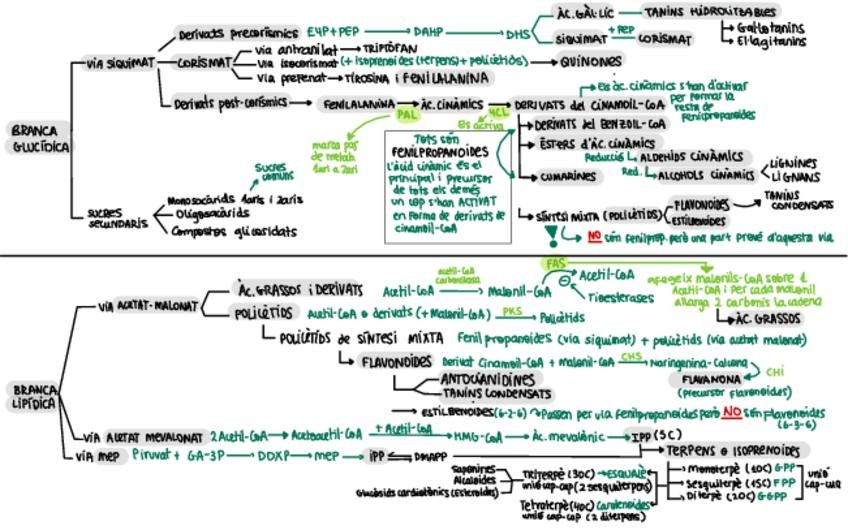 Derivats precorísmics E4P + PEP → DAHP → DHS
ÀC. GÀL·LIC → TANINS HIDROLITZABLES
Gal·lotanins
El·lagitanins
SIQUIMAT + PEP CORISMAT
VIA SIQUIMAT
CORISMAT
Via antranilat → TRIPTÒFAN
Via isocorismat (+ isoprenoides (terpens) + policètids) → QUINONES
Via prefenat → TIROSINA i FENILALANINA
Derivats post-corísmics → FENILALANINA → ÀC. CINÀMICS → DERIVATS del CINAMOIL-CoA
PAL
4CL
Els activa
Els àc. cinàmics s'han d'activar
per formar la
resta de
fenilpropanoides
BRANCA
GLUCÍDICA
marca pas
de metab.
1ari a 2ari
Tots són
FENILPROPANOIDES
L'àcid cinàmic és el
principal i precursor
de tots els demés
un cop s'han ACTIVAT
en forma de derivats de
cinamoil-CoA
DERIVATS del BENZOIL-CoA
ÈSTERS D'ÀC. CINÀMICS
Reducció ALDEHIDS CINÀMICS
Red. ALCOHOLS CINÀMICS
LIGNINES
LIGNANS
CUMARINES
SÍNTESI MIXTA (POLICÈTIDS)
FLAVONOIDES
ESTILBENOIDES
TANINS
CONDENSATS
NO són fenilprop. però una part prové d'aquesta via
SUCRES
SECUNDARIS
Sucres
comuns
Monosacàrids 1aris i 2aris
Oligosacàrids
Compostos glicosidats
BRANCA
LIPÍDICA
VIA ACETAT-MALONAT
ÀC. GRASSOS i DERIVATS
Acetil-CoA → Malonil-CoA
acetil-CoA
carboxilasa
FAS
Acetil-CoA
Tioesterases
afegeix malonils-CoA sobre 1
Acetil-CoA i per cada malonil
allarga 2 carbonis la cadena
ÀC. GRASSOS
POLICÈTIDS Acetil-CoA o derivats (+ Malonil-CoA) PKS → Policètids
POLICÈTIDS de SÍNTESI MIXTA Fenilpropanoides (via siquimat) + policètids (via acetat malonat)
FLAVONOIDES Derivat Cinamoil-CoA + Malonil-CoA CHS → Naringenina-Calcona
CHI
FLAVANONA
(Precursor flavonoides)
ANTOCIANIDINES
TANINS CONDENSATS
ESTILBENOIDES (6-2-6) → Passen per via fenilpropanoides però NO són flavonoides
(6-3-6)
VIA ACETAT MEVALONAT 2 Acetil-CoA → Acetoacetil-CoA + Acetil-CoA → HMG-CoA → Àc. mevalònic → IPP (5C)
VIA MEP Piruvat + GA-3P → DOXP → MEP → IPP ⇌ DMAPP
TERPENS o ISOPRENOIDES
Saponines
Alcaloides
Glucòsids cardiotònics (Esteroides)
TRITERPÈ (30C) → ESQUALÈ
unió cap-cap (2 sesquiterpens)
Tetraterpè (40C) Carotenoides
unió cap-cap (2 diterpens)
Monoterpè (10C) GPP
Sesquiterpè (15C) FPP
Diterpè (20C) GGPP
unió
cap-cua